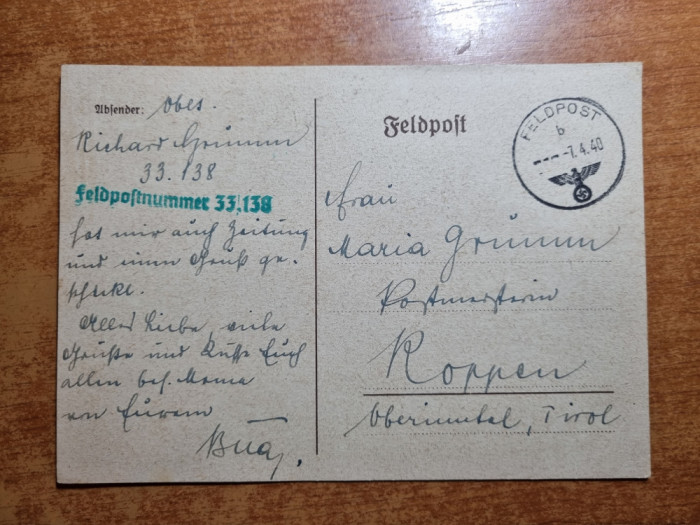 Absender: Obes.
Richard Grumm
33.138
Feldpostnummer 33,138
hat mir auch Zeitung
und einen Gruß ge-
schickt.
Alles Liebe, viele
Grüsse und Küsse Euch
allen bes. Mama
von Eurem
Feldpost
FELDPOST
b
-7.4.40
Frau
Maria Grumm
Postmeisterin
Roppen
Oberinntal, Tirol